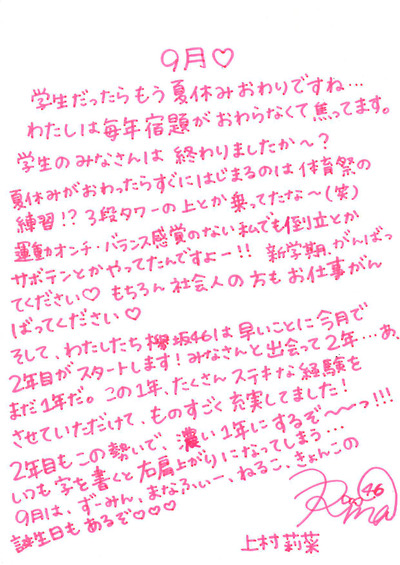 9月♡
学生だったらもう夏休みおわりですね…
わたしは毎年宿題がおわらなくて焦ってます。
学生のみなさんは終わりましたか〜？
夏休みがおわったらすぐにはじまるのは体育祭の
練習!? 3段タワーの上とか乗ってたな〜(笑)
運動オンチ・バランス感覚のない私でも倒立とか
サボテンとかやってたんですよー!! 新学期、がんばっ
てください♡ もちろん社会人の方もお仕事がん
ばってください♡
そして、わたしたち欅坂46は早いことに今月で
2年目がスタートします！みなさんと出会って2年…あ、
まだ1年だ。この1年、たくさんステキな経験を
させていただけて、ものすごく充実してました！
2年目もこの勢いで、濃い1年にするぞ〜〜っ!!!
いつも字を書くと右肩上がりになってしまう…
9月は、ずーみん、まなふぃー、ねるこ、きょんこの
誕生日もあるぞ♡♡♡
Rina 46
上村莉菜